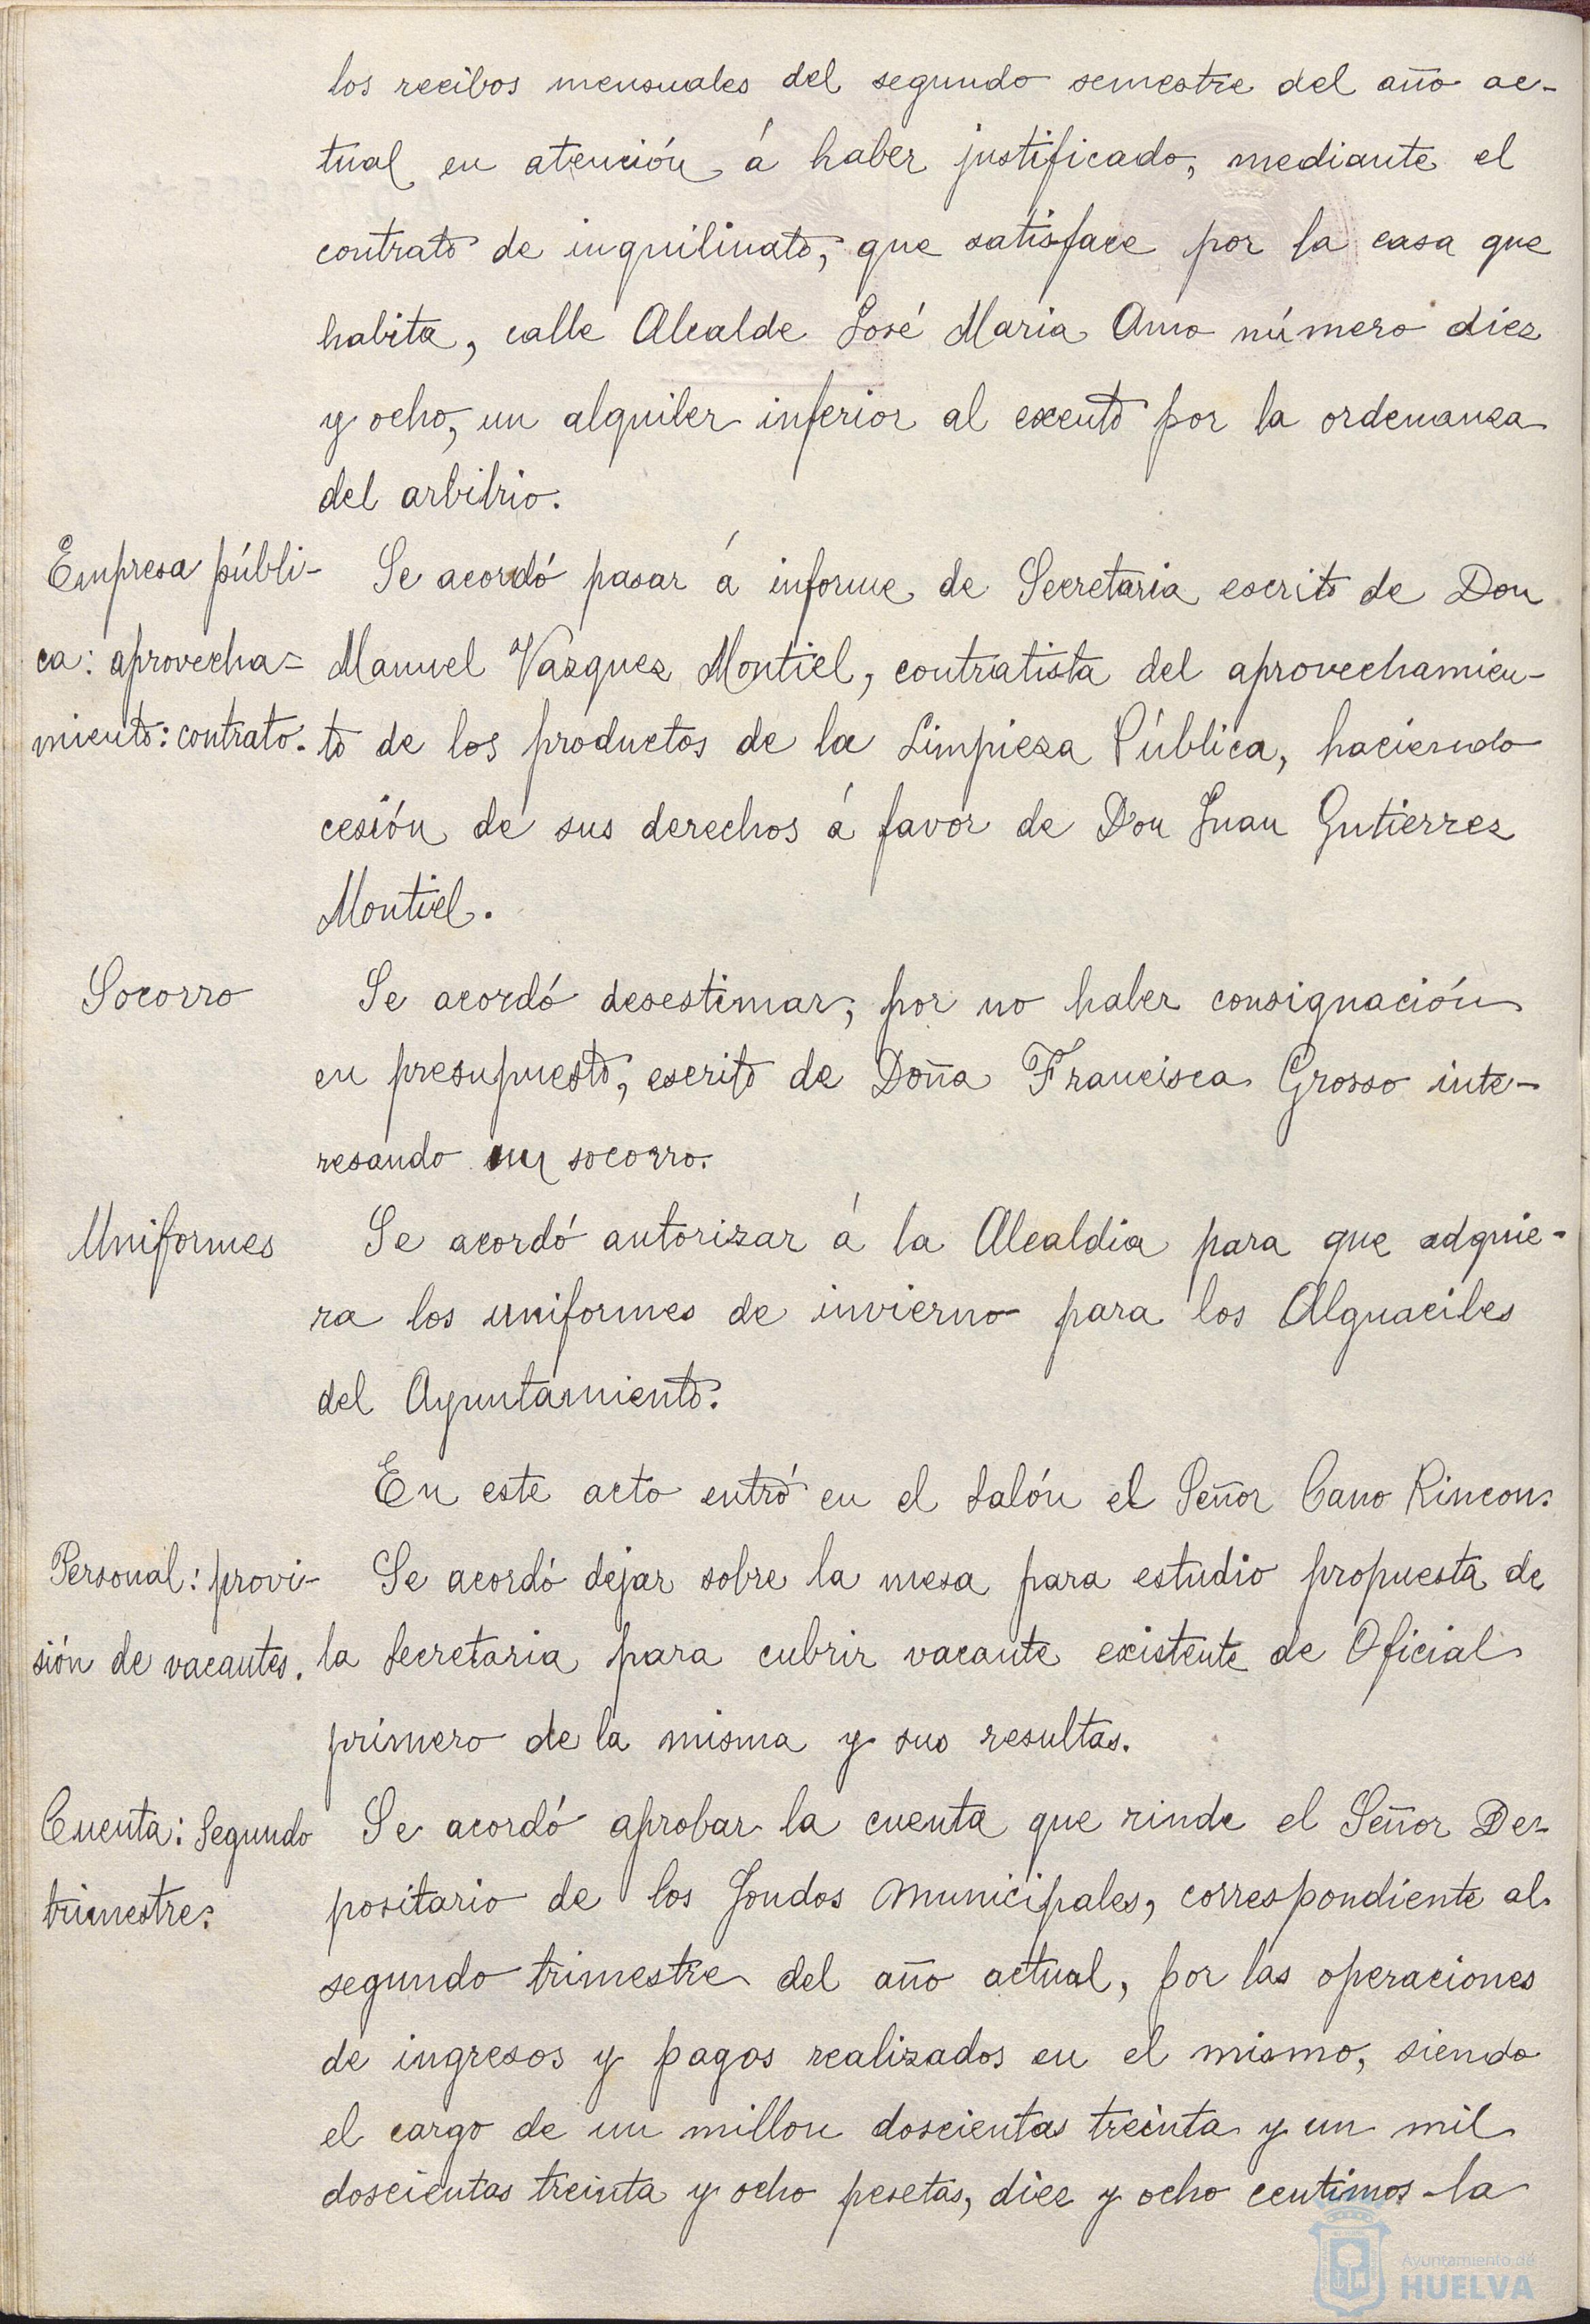 los recibos mensuales del segundo semestre del año ac-
tual en atención á haber justificado, mediante el
contrato de inquilinato, que satisface por la casa que
habita, calle Alcalde José Maria Amo número diez
y ocho, un alquiler inferior al exento por la ordenanza
del arbitrio.
Empresa públi-
ca: aprovecha=
miento: contrato.
Se acordó pasar á informe de Secretaria escrito de Don
Manuel Vazquez Montiel, contratista del aprovechamien-
to de los productos de la Limpieza Pública, haciendo
cesión de sus derechos á favor de Don Juan Gutierrez
Montiel.
Socorro
Se acordó desestimar, por no haber consignación
en presupuesto, escrito de Doña Francisca Grosso inte-
resando un socorro.
Uniformes
Se acordó autorizar á la Alcaldia para que adquie-
ra los uniformes de invierno para los Alguaciles
del Ayuntamiento.
En este acto entró en el Salón el Señor Cano Rincon.
Personal: provi-
sión de vacantes.
Se acordó dejar sobre la mesa para estudio propuesta de
la Secretaria para cubrir vacante existente de Oficial
primero de la misma y sus resultas.
Cuenta: Segundo
trimestre.
Se acordó aprobar la cuenta que rinde el Señor De-
positario de los fondos municipales, correspondiente al
segundo trimestre del año actual, por las operaciones
de ingresos y pagos realizados en el mismo, siendo
el cargo de un millon doscientas treinta y un mil
doscientas treinta y ocho pesetas, diez y ocho centimos la
Ayuntamiento de
HUELVA